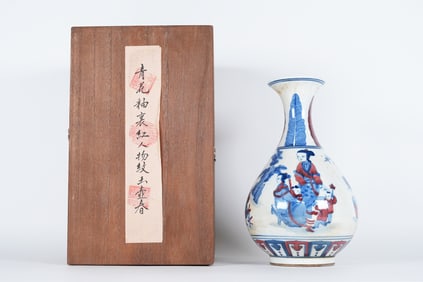 青花釉裏紅人物紋玉壺春